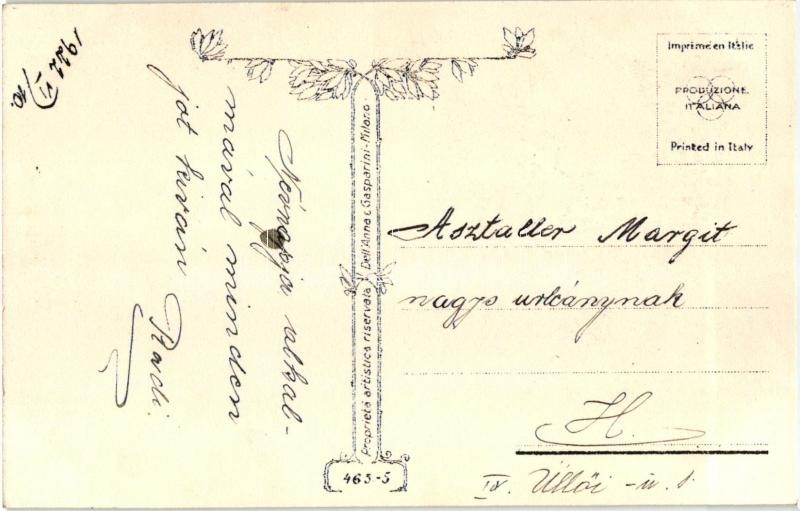 1927 VI/10.
Neónapja alkal-
mával minden
jót kíván
Radi.
Proprietà artistica riservata Dell'Anna e Gasparini - Milano.
463-5
Imprimé en Italie
PRODUZIONE
ITALIANA
Printed in Italy
Asztaller Margit
nagys urleánynak
H.
IX. Üllői-u. 1.